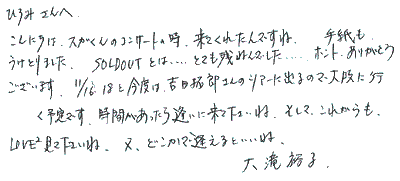 ひろみさんへ
こんにちは、スガくんのコンサートの時、来てくれたんですね。 手紙も
うけとりました。 SOLDOUTとは…、とても残ねんでした…… ホント、ありがとう
ございます。 11/16.18と今度は、吉田拓郎さんのツアーに出るので大阪に行
く予定です、時間があったら逢いに来て下さいね。 そして、これからも、
LOVE²見て下さいね。 又、どこかで逢えるといいね。
大滝裕子.